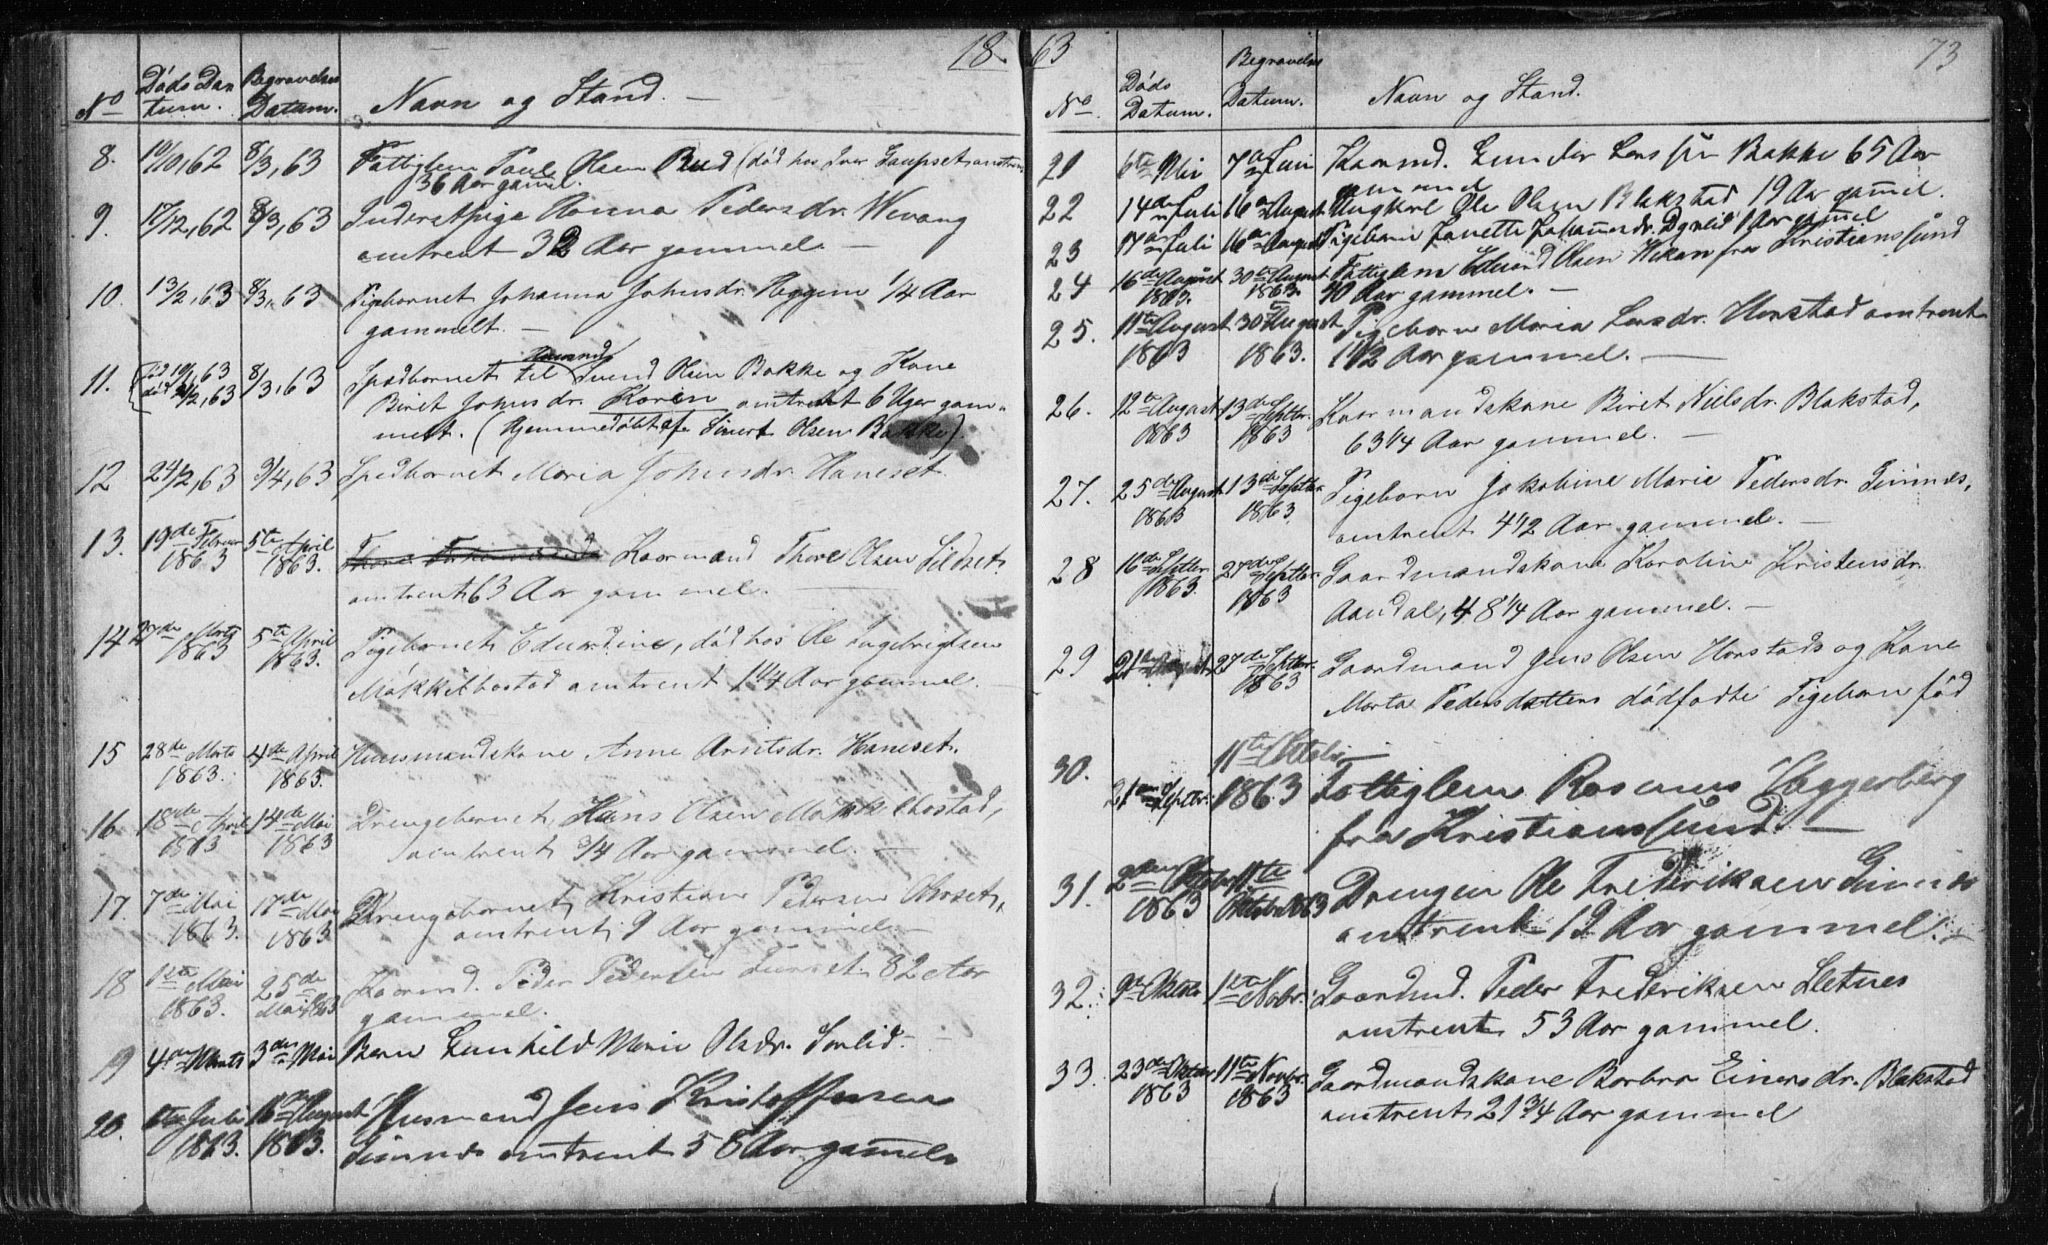 1863
73
No Døds Datum. Begravelses Datum. Navn og Stand. —
8. 19/10,62 8/3,63 Fattiglem Paul Olsen Rud (død hos Iver Gaupset omtrent
36 Aar gammel.
9. 17/12,62 8/3,63 Inderstpige Hanna Pedersdr. Wevang
omtrent 32 Aar gammel. —
10. 13/2,63 8/3,63 Pigebarnet Johanna Johnsdr. Heggem 1/4 Aar
gammelt. —
11. død 2/2,63 8/3,63 Spædbarnet til Svend Olsen Bakke og Kone
Beret Johnsdr. Karen omtrent 6 Uger gam-
melt. (Hjemmedøbt af Sivert Olsen Bakke).
12 24/2,63 3/4,63 Spædbarnet Maria Johnsdr. Haneset.
13. 19de Februar 1863 5te April 1863. Kaarmand Thore Olsen Sildset
omtrent 63 Aar gammel. —
14 27de Marts 1863 5te April 1863. Pigebarnet Edvardine, død hos Ole Ingebrigtsen
Møkkelbostad omtrent 1 1/4 Aar gammel. —
15 28de Marts 1863. 4de April 1863. Huusmandskone Anne Arntsdr. Haneset.
16 18de April 1863 14de Mai 1863 Drengebarnet Hans Olsen Møkkelbostad,
omtrent 3/4 Aar gammel. —
17. 7de Mai 1863. 17de Mai 1863 Drengebarnet Kristian Pedersen Orset,
omtrent 9 Aar gammel —
18 1ste Mai 1863. 25de Mai 1863 Kaarmd. Peder Pedersen 82 Aar
gammel.
19 4de Marts 3die Mai Barn Gunhild Marie Olsdr. Sorlid.
20. 6te Juli 1863. 16de August 1863. Husmand Jens Kristoffersen
Gimnes omtrent 58 Aar gammel
No. Døds Datum. Begravelses Datum. Navn og Stand.
21 6te 7de Juni Kaarmd. Gunder Larssen Bakke 65 Aar
gammel
22 14de Juli 16de August Ungkarl Ole Olsen Blakstad 19 Aar gammel.
23 17de Juli 16de August Pigebarn Janette Johannesdr. 1 Aar gammel
24 16de August 1863. 30te August 1863. Fattiglem Edvard Olsen fra Kristianssund
40 Aar gammel. —
25. 11te August 1863 30te August 1863. Pigebarn Maria Larsdr. Harstad omtrent
1 1/2 Aar gammel. —
26. 12te August 1863 13de Septbr. 1863 Kaarmandskone Beret Nielsdr. Blakstad,
63 1/4 Aar gammel. —
27. 25de August 1863 13de Septbr. 1863. Pigebarn Jakobine Marie Pedersdr. Gimnes,
omtrent 4 1/2 Aar gammel. —
28 16de Septbr. 1863. 27de Septbr. 1863 Gaardmandskone Karoline Kristensdr.
Aandal, 48 1/4 Aar gammel. —
29 21de 27de Septbr. 1863 Gaardmand Jens Olsen Harstads og Kone
Marta Pedersdatters dødfødte Pigebarn fød
30. 21de Septbr. 11te Oktober 1863 Fattiglem Rasmus Haggerberg
fra Kristianssund. —
31. 2den Oktober 1863 11te Oktober 1863 Drengen Ole Frederiksen Gimnes
omtrent 12 Aar gammel. —
32. 9de Oktober 1ste Novbr. Gaardmd. Peder Frederiksen Sletnes
omtrent 53 Aar gammel.
33. 23de Oktober 1863 11te Novbr. 1863 Gaardmandskone Barbro Einersdr. Blakstad
omtrent 21 3/4 Aar gammel